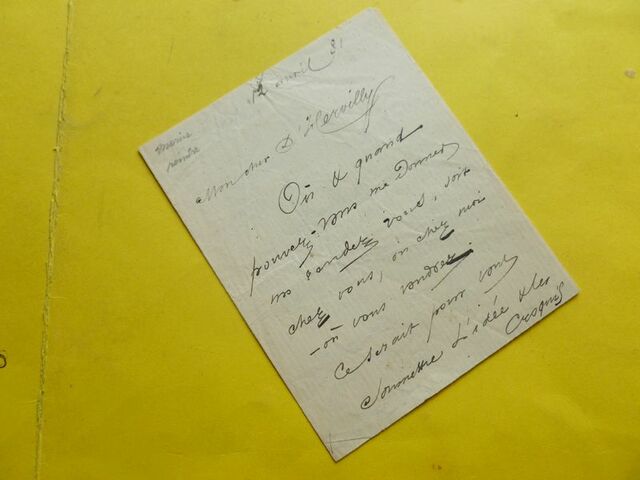 12 avril 81
Mon cher D'Hervilly
Où & quand
pouvez-vous me donner
un rendez vous, soit
chez vous, ou chez moi
-où vous voudrez.
Ce serait pour vous
soumettre l'idée & les
Croquis
peintre